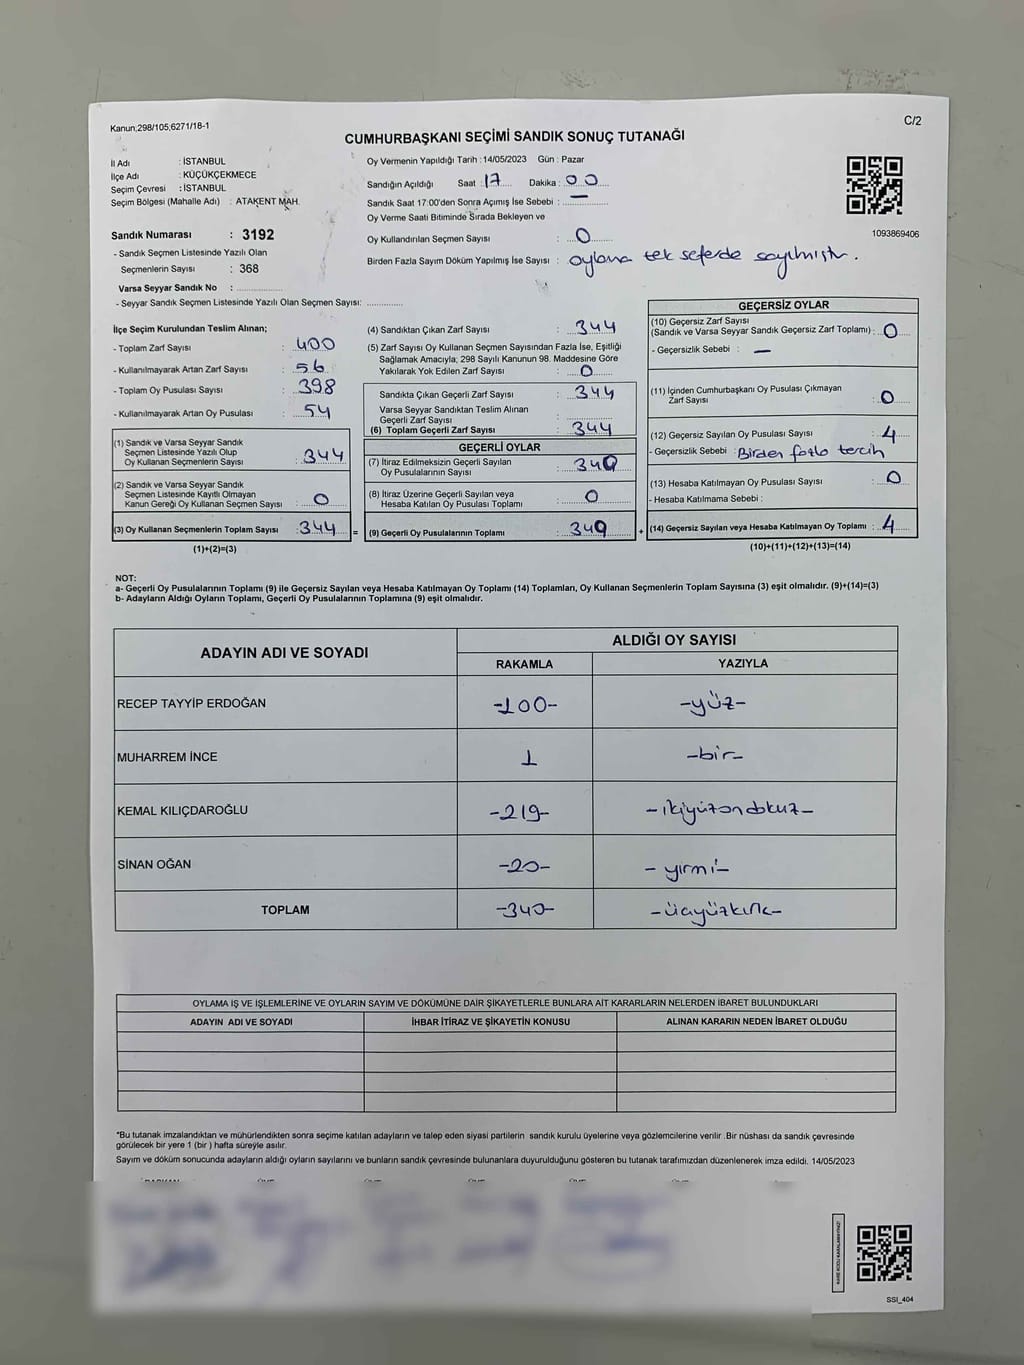 Kanun;298/105;6271/18-1
C/2
CUMHURBAŞKANI SEÇİMİ SANDIK SONUÇ TUTANAĞI
İl Adı : İSTANBUL
İlçe Adı : KÜÇÜKÇEKMECE
Seçim Çevresi : İSTANBUL
Seçim Bölgesi (Mahalle Adı) : ATAKENT MAH.
Sandık Numarası : 3192
- Sandık Seçmen Listesinde Yazılı Olan
Seçmenlerin Sayısı : 368
Varsa Seyyar Sandık No : ..............
- Seyyar Sandık Seçmen Listesinde Yazılı Olan Seçmen Sayısı: ............
Oy Vermenin Yapıldığı Tarih : 14/05/2023 Gün : Pazar
Sandığın Açıldığı Saat : 17 Dakika : 00
Sandık Saat 17:00'den Sonra Açımış İse Sebebi : —
Oy Verme Saati Bitiminde Sırada Bekleyen ve
Oy Kullandırılan Seçmen Sayısı : 0
Birden Fazla Sayım Döküm Yapılmış İse Sayısı : oylama tek seferde sayılmıştır.
1093869406
İlçe Seçim Kurulundan Teslim Alınan;
- Toplam Zarf Sayısı : 400
- Kullanılmayarak Artan Zarf Sayısı : 56
- Toplam Oy Pusulası Sayısı : 398
- Kullanılmayarak Artan Oy Pusulası : 54
(1) Sandık ve Varsa Seyyar Sandık
Seçmen Listesinde Yazılı Olup
Oy Kullanan Seçmenlerin Sayısı : 344
(2) Sandık ve Varsa Seyyar Sandık
Seçmen Listesinde Kayıtlı Olmayan
Kanun Gereği Oy Kullanan Seçmen Sayısı : 0
(3) Oy Kullanan Seçmenlerin Toplam Sayısı : 344 =
(1)+(2)=(3)
(4) Sandıktan Çıkan Zarf Sayısı : 344
(5) Zarf Sayısı Oy Kullanan Seçmen Sayısından Fazla İse, Eşitliği
Sağlamak Amacıyla; 298 Sayılı Kanunun 98. Maddesine Göre
Yakılarak Yok Edilen Zarf Sayısı : 0
Sandıkta Çıkan Geçerli Zarf Sayısı : 344
Varsa Seyyar Sandıktan Teslim Alınan
Geçerli Zarf Sayısı : ..............
(6) Toplam Geçerli Zarf Sayısı : 344
GEÇERLİ OYLAR
(7) İtiraz Edilmeksizin Geçerli Sayılan
Oy Pusulalarının Sayısı : 340
(8) İtiraz Üzerine Geçerli Sayılan veya
Hesaba Katılan Oy Pusulası Toplamı : 0
(9) Geçerli Oy Pusulalarının Toplamı : 340 +
GEÇERSİZ OYLAR
(10) Geçersiz Zarf Sayısı
(Sandık ve Varsa Seyyar Sandık Geçersiz Zarf Toplamı) : 0
- Geçersizlik Sebebi : —
(11) İçinden Cumhurbaşkanı Oy Pusulası Çıkmayan
Zarf Sayısı : 0
(12) Geçersiz Sayılan Oy Pusulası Sayısı : 4
- Geçersizlik Sebebi : Birden fazla tercih
(13) Hesaba Katılmayan Oy Pusulası Sayısı : 0
- Hesaba Katılmama Sebebi :
(14) Geçersiz Sayılan veya Hesaba Katılmayan Oy Toplamı : 4
(10)+(11)+(12)+(13)=(14)
NOT:
a- Geçerli Oy Pusulalarının Toplamı (9) ile Geçersiz Sayılan veya Hesaba Katılmayan Oy Toplamı (14) Toplamları, Oy Kullanan Seçmenlerin Toplam Sayısına (3) eşit olmalıdır. (9)+(14)=(3)
b- Adayların Aldığı Oyların Toplamı, Geçerli Oy Pusulalarının Toplamına (9) eşit olmalıdır.
ADAYIN ADI VE SOYADI
ALDIĞI OY SAYISI
RAKAMLA YAZIYLA
RECEP TAYYİP ERDOĞAN -100- -yüz-
MUHARREM İNCE 1 -bir-
KEMAL KILIÇDAROĞLU -219- -ikiyüzondokuz-
SİNAN OĞAN -20- -yirmi-
TOPLAM -340- -üçyüzkırk-
OYLAMA İŞ VE İŞLEMLERİNE VE OYLARIN SAYIM VE DÖKÜMÜNE DAİR ŞİKAYETLERLE BUNLARA AİT KARARLARIN NELERDEN İBARET BULUNDUKLARI
ADAYIN ADI VE SOYADI İHBAR İTİRAZ VE ŞİKAYETİN KONUSU ALINAN KARARIN NEDEN İBARET OLDUĞU
*Bu tutanak imzalandıktan ve mühürlendikten sonra seçime katılan adayların ve talep eden siyasi partilerin sandık kurulu üyelerine veya gözlemcilerine verilir .Bir nüshası da sandık çevresinde
görülecek bir yere 1 (bir ) hafta süreyle asılır.
Sayım ve döküm sonucunda adayların aldığı oyların sayılarını ve bunların sandık çevresinde bulunanlara duyurulduğunu gösteren bu tutanak tarafımızdan düzenlenerek imza edildi. 14/05/2023
KARE KODU KARALAMAYINIZ!
SSI_404